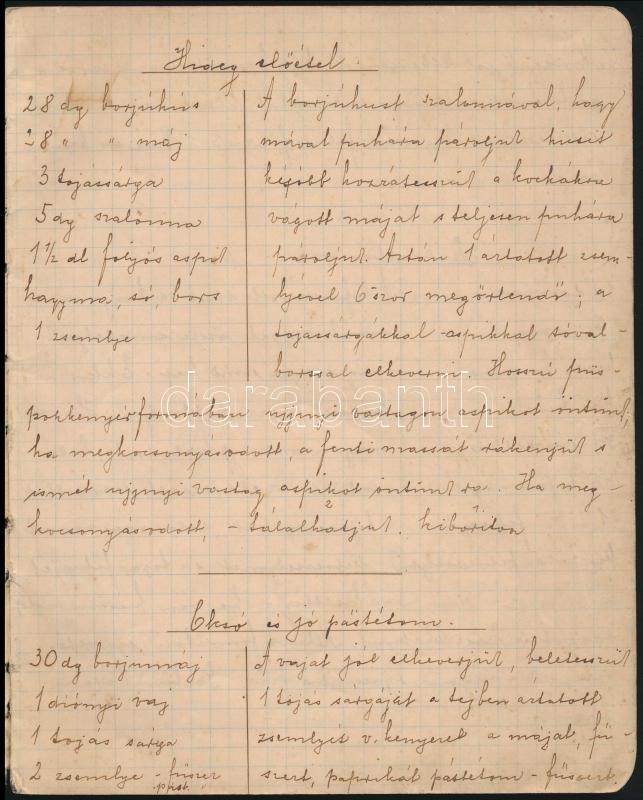 Hideg előétel.
28 dg borjúhús
28 " " máj
3 tojássárga
5 dg szalonna
1 1/2 dl folyós aspik
hagyma, só, bors
1 zsemlye
A borjúhust szalonnával, hagy
mával puhára pároljuk kicsit
később hozzátesszük a kockákra
vágott máját s teljesen puhára
pároljuk. Aztán 1 áztatott zsem-
lyével 6-szor megőrlendő; a
tojássárgákkal aspikkal sóval-
borssal elkeverni. Hosszú püs-
pökkenyérformában ujjnyi vastagon aspikot öntünk,
ha megkocsonyásodott, a fenti masszát rákenjük s
ismét ujjnyi vastag aspikot öntünk rá. Ha meg-
kocsonyásodott, - tálalhatjuk 2 kiborítva 1
Olcsó és jó pástétom.
30 dg borjúmáj
1 diónyi vaj
1 tojás sárga
2 zsemlye - fűszer
pást. "
A vajat jól elkeverjük, beleteszük
1 tojás sárgáját a tejben áztatott
zsemlyét v. kenyeret a májat, fű-
szert, paprikát pástétom - fűszert.
darabanth